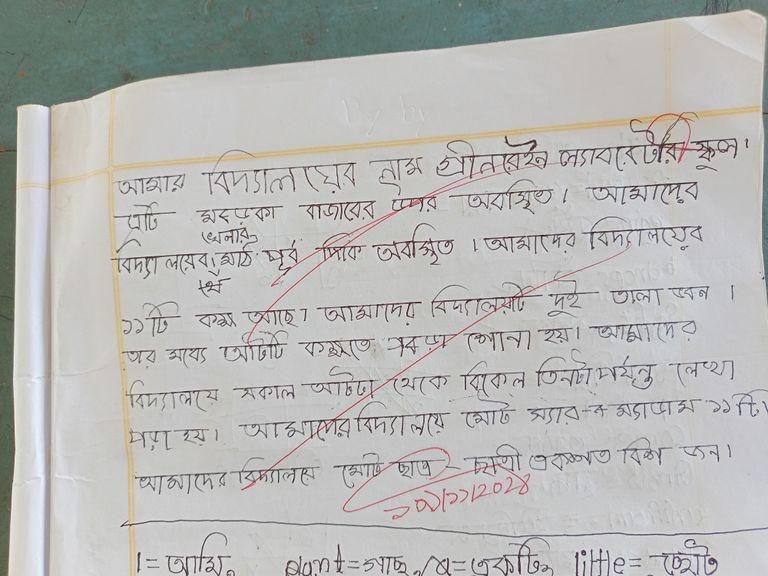 আমার বিদ্যালয়ের নাম গ্রীনরেইন ল্যাবরেটরি স্কুল।
এটি বাজারের উপর অবস্থিত। আমাদের
খেলার
বিদ্যালয়ের মাঠ পূর্ব দিকে অবস্থিত। আমাদের বিদ্যালয়ের
১১টি কক্ষ আছে। আমাদের বিদ্যালয়টি দুই তালা ভবন।
তার মধ্যে আটটি কক্ষতে হয়। আমাদের
বিদ্যালয়ে সকাল আটটা থেকে বিকেল তিনটা পর্যন্ত লেখা
পড়া হয়। আমাদের বিদ্যালয়ে মোট স্যার ম্যাডাম ১১টি।
আমাদের বিদ্যালয়ে মোট ছাত্র - ছাত্রী একশত বিশ জন।
1 = আমি, plant = গাছ, a = একটি, little = ছোট